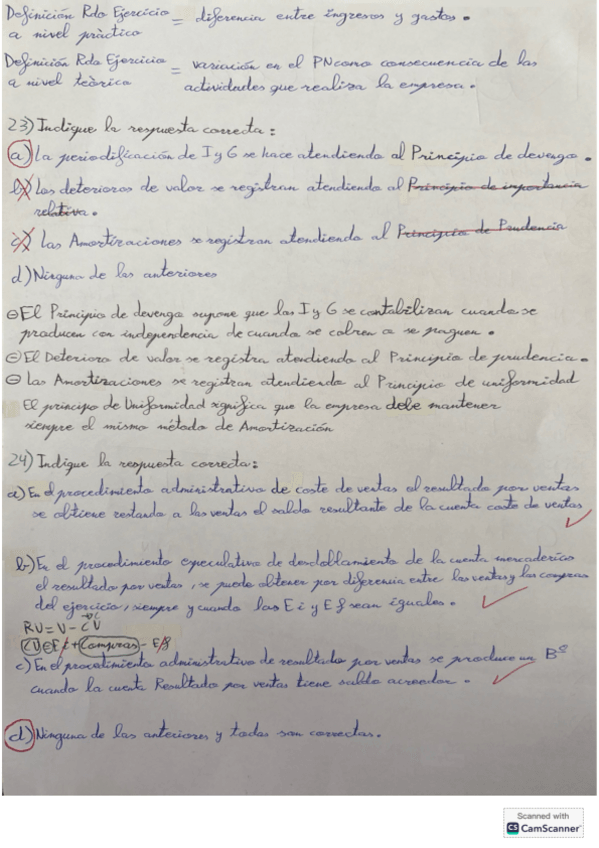 Definición Rdo Ejercicio = diferencia entre ingresos y gastos.
a nivel pràctico
Definición Rdo Ejercicio = variación en el PN como consecuencia de las
a nivel teòrico actividades que realiza la empresa.
23) Indique la respuesta correcta:
a) La periodificación de I y G se hace atendiendo al Principio de devengo.
b) Los deterioros de valor se registran atendiendo al Principio de importancia
relativa.
c) Las Amortizaciones se registran atendiendo al Principio de Prudencia
d) Ninguna de las anteriores
El Principio de devengo supone que los I y G se contabilizan cuando se
producen con independencia de cuando se cobren o se paguen.
El Deterioro de valor se registra atendiendo al Principio de prudencia.
Las Amortizaciones se registran atendiendo al Principio de uniformidad
El principio de Uniformidad significa que la empresa debe mantener
siempre el mismo método de Amortización
24) Indique la respuesta correcta:
a) En el procedimiento administrativo de coste de ventas el resultado por ventas
se obtiene restando a las ventas el saldo resultante de la cuenta coste de ventas
b) En el procedimiento especulativo de desdoblamiento de la cuenta mercaderías
el resultado por ventas, se puede obtener por diferencia entre las ventas y las compras
del ejercicio, siempre y cuando las Ei y Ef sean iguales.
RV = V - CV
CV = Ei + Compras - Ef
c) En el procedimiento administrativo de resultado por ventas se produce un Bº
cuando la cuenta Resultado por ventas tiene saldo acreedor.
d) Ninguna de las anteriores y todas son correctas.
Scanned with
CS CamScanner